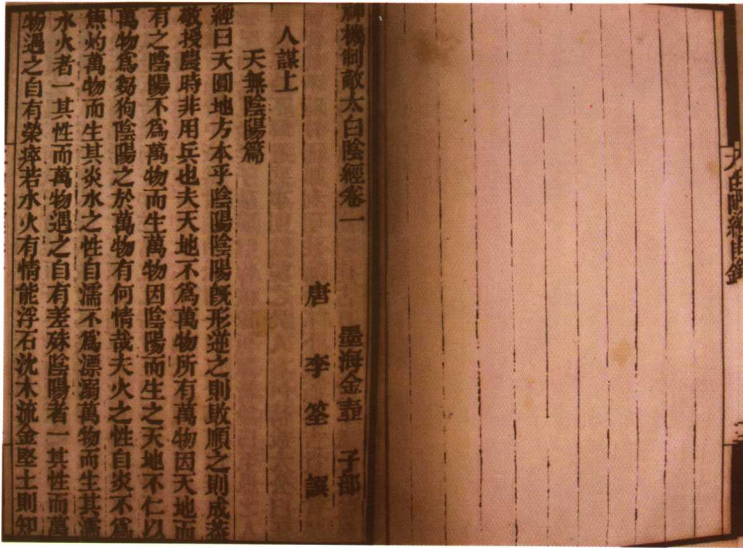 太白陰經目錄
神機制敵太白陰經卷一 墨海金壺 子部
唐 李 筌 譔
人謀上
天無陰陽篇
經曰天圓地方本乎陰陽陰陽旣形逆之則敗順之則成蓋
敬授農時非用兵也夫天地不爲萬物所有萬物因天地而
有之陰陽不爲萬物而生萬物因陰陽而生之天地不仁以
萬物爲芻狗陰陽之於萬物有何情哉夫火之性自炎不爲
焦灼萬物而生其炎水之性自濡不爲漂溺萬物而生其濡
水火者一其性而萬物遇之自有差殊陰陽者一其性而萬
物遇之自有榮瘁若水火有情能浮石沈木流金堅土則知